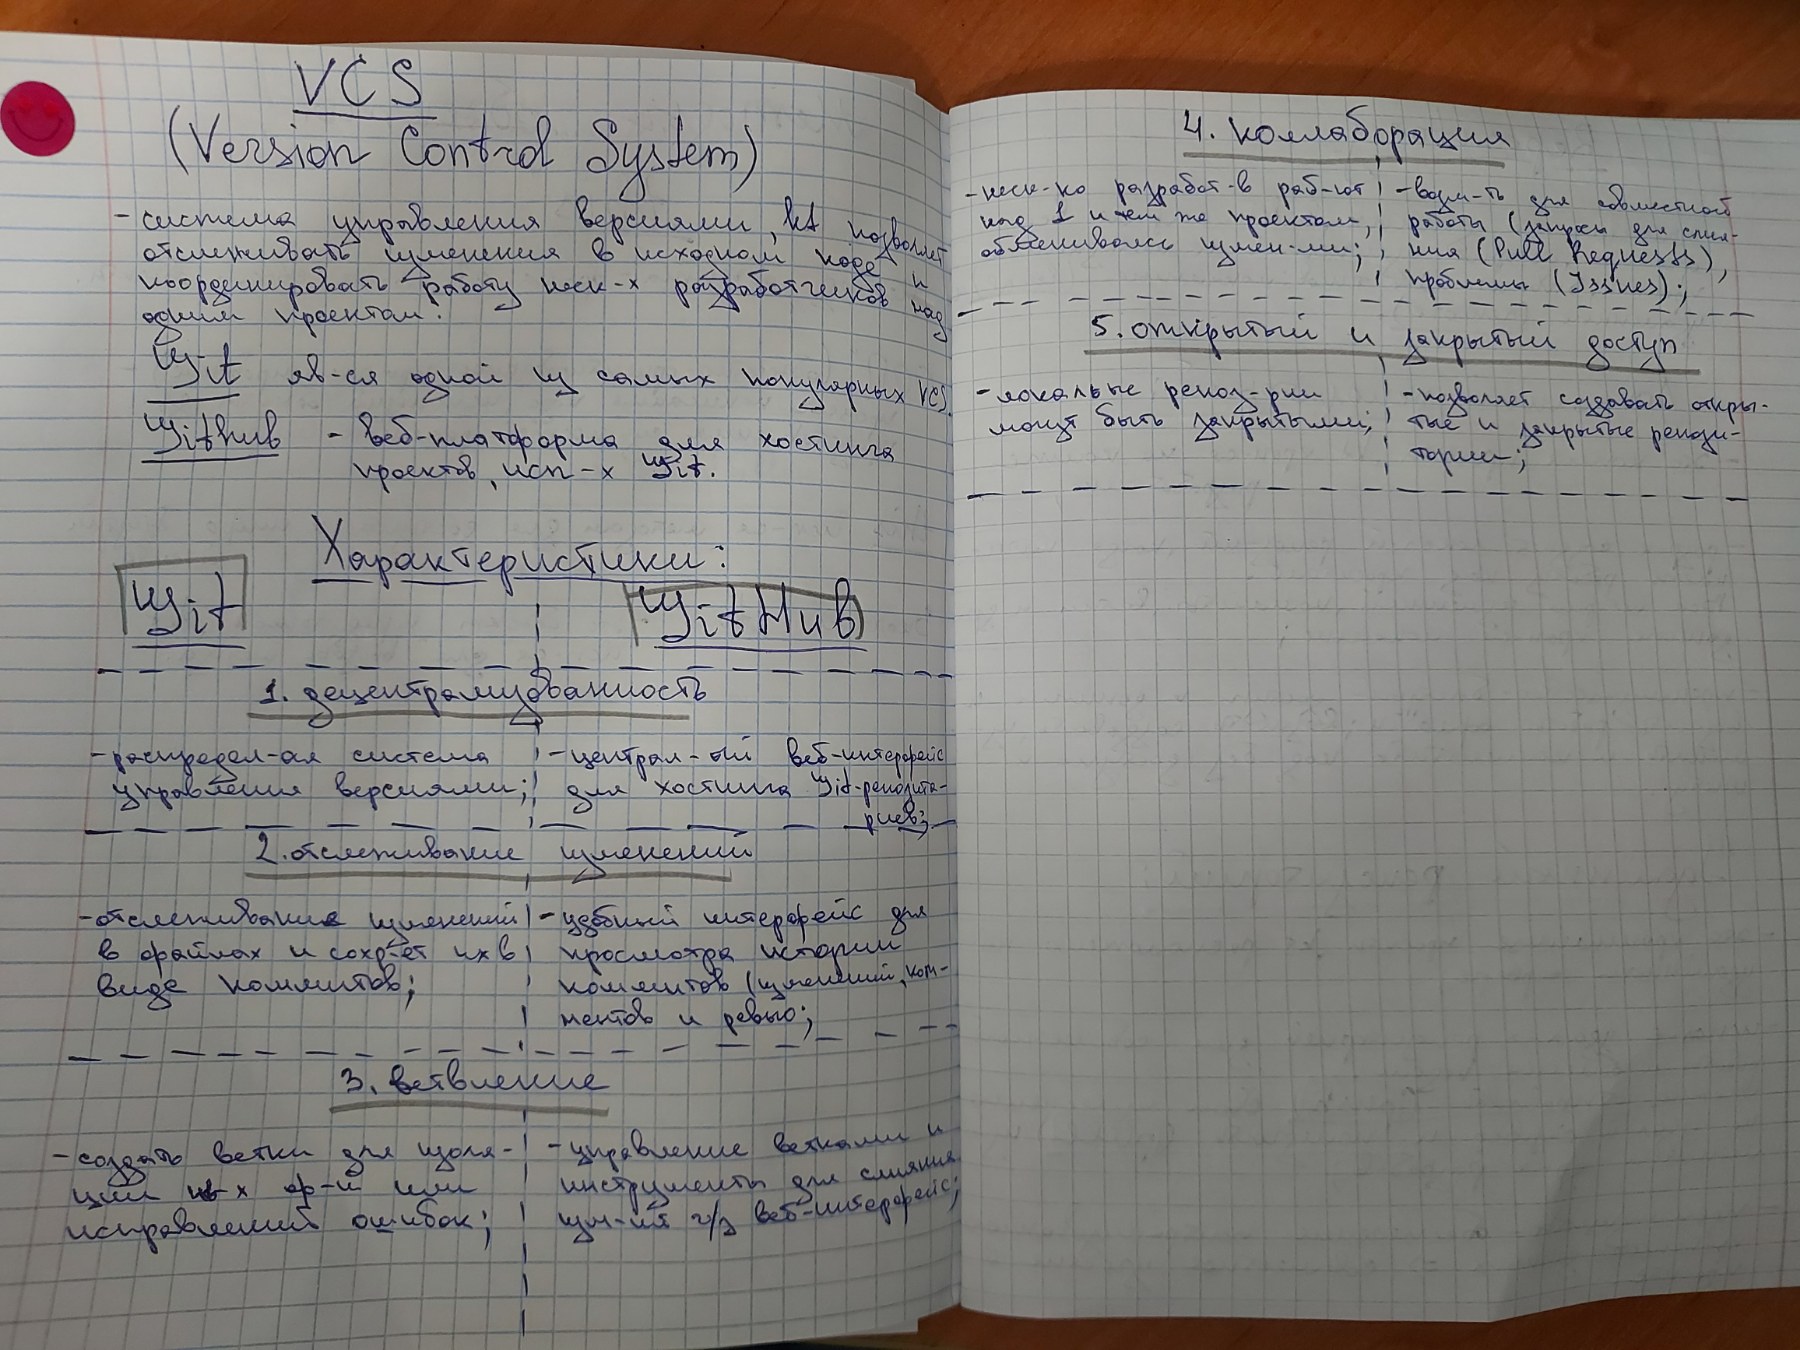 VCS
(Version Control System)
- система управления версиями, кт позволяет
отслеживать изменения в исходном коде и
координировать работу неск-х разработчиков над
одним проектом.
Git яв-ся одной из самых популярных VCS.
Github - веб-платформа для хостинга
проектов, исп-х Git.
Характеристики:
Git GitHub
1. децентрализованность
- распредел-ая система
управления версиями;
- централ-ый веб-интерфейс
для хостинга Git-репозита-
риев;
2. отслеживание изменений
- отслеживание изменений
в файлах и сохр-ет их в
виде коммитов;
- удобный интерфейс для
просмотра истории
коммитов (изменений, ком-
ментов и ревью;
3. ветвление
- создать ветки для изоля-
ции нов-х ф-й или
исправлений ошибок;
- управление ветками и
инструменты для слияния
изм-ий ч/з веб-интерфейс;
4. коллаборация
- неск-ко разработ-в раб-ют
над 1 и тем же проектом,
обмениваясь измен-ми;
- возм-ть для совместной
работы (запросы для слия-
ния (Pull Requests),
проблемы (Issues);
5. открытый и закрытый доступ
- локальные репоз-рии
могут быть закрытыми;
- позволяет создавать откры-
тые и закрытые репози-
тории;